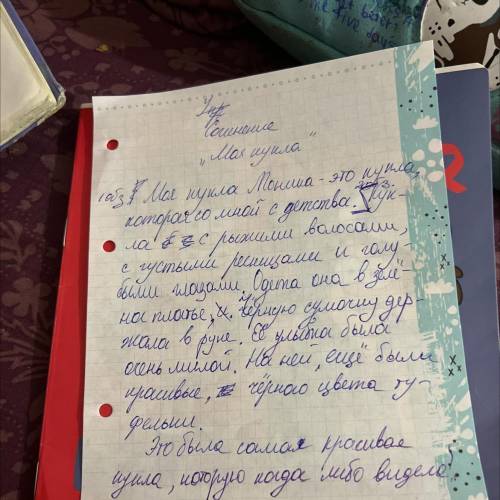 Упр
Сочинение
„Моя кукла"
1 абз Моя кукла Моника - это кукла,
которая со мной с детства. Кук-
ла с рыжими волосами,
с густыми ресницами и голу-
быми глазами. Одета она в зелё-
на платье, чёрную сумочку дер-
жала в руке. Её улыбка была
очень милой. На ней, ещё были
красивые, чёрного цвета ту-
фельки.
Это была самая красивая
кукла, которую когда либо видела